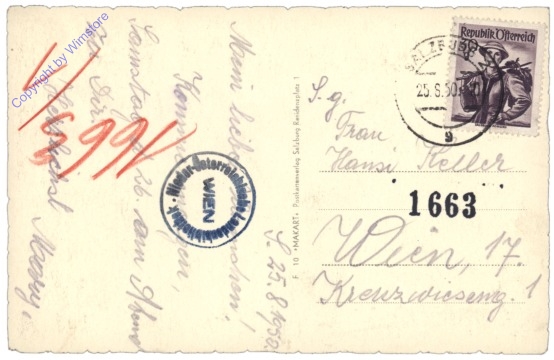 Copyright by Wimstore
S. 25.8.1950.
Mein liebes
Kommt morgen,
Samstag, d. 26. am Abend
zu Dir.
Herzlichst
1663
Nieder-Österreichische Landesbibliothek
WIEN
F 10 «MAKART» Postkartenverlag Salzburg Residenzplatz 1
Republik Österreich
SALZBURG
25.8.50
9
S. g.
Frau
Hansi Keller
1663
Wien, 17.
Kreuzwieseng. 1